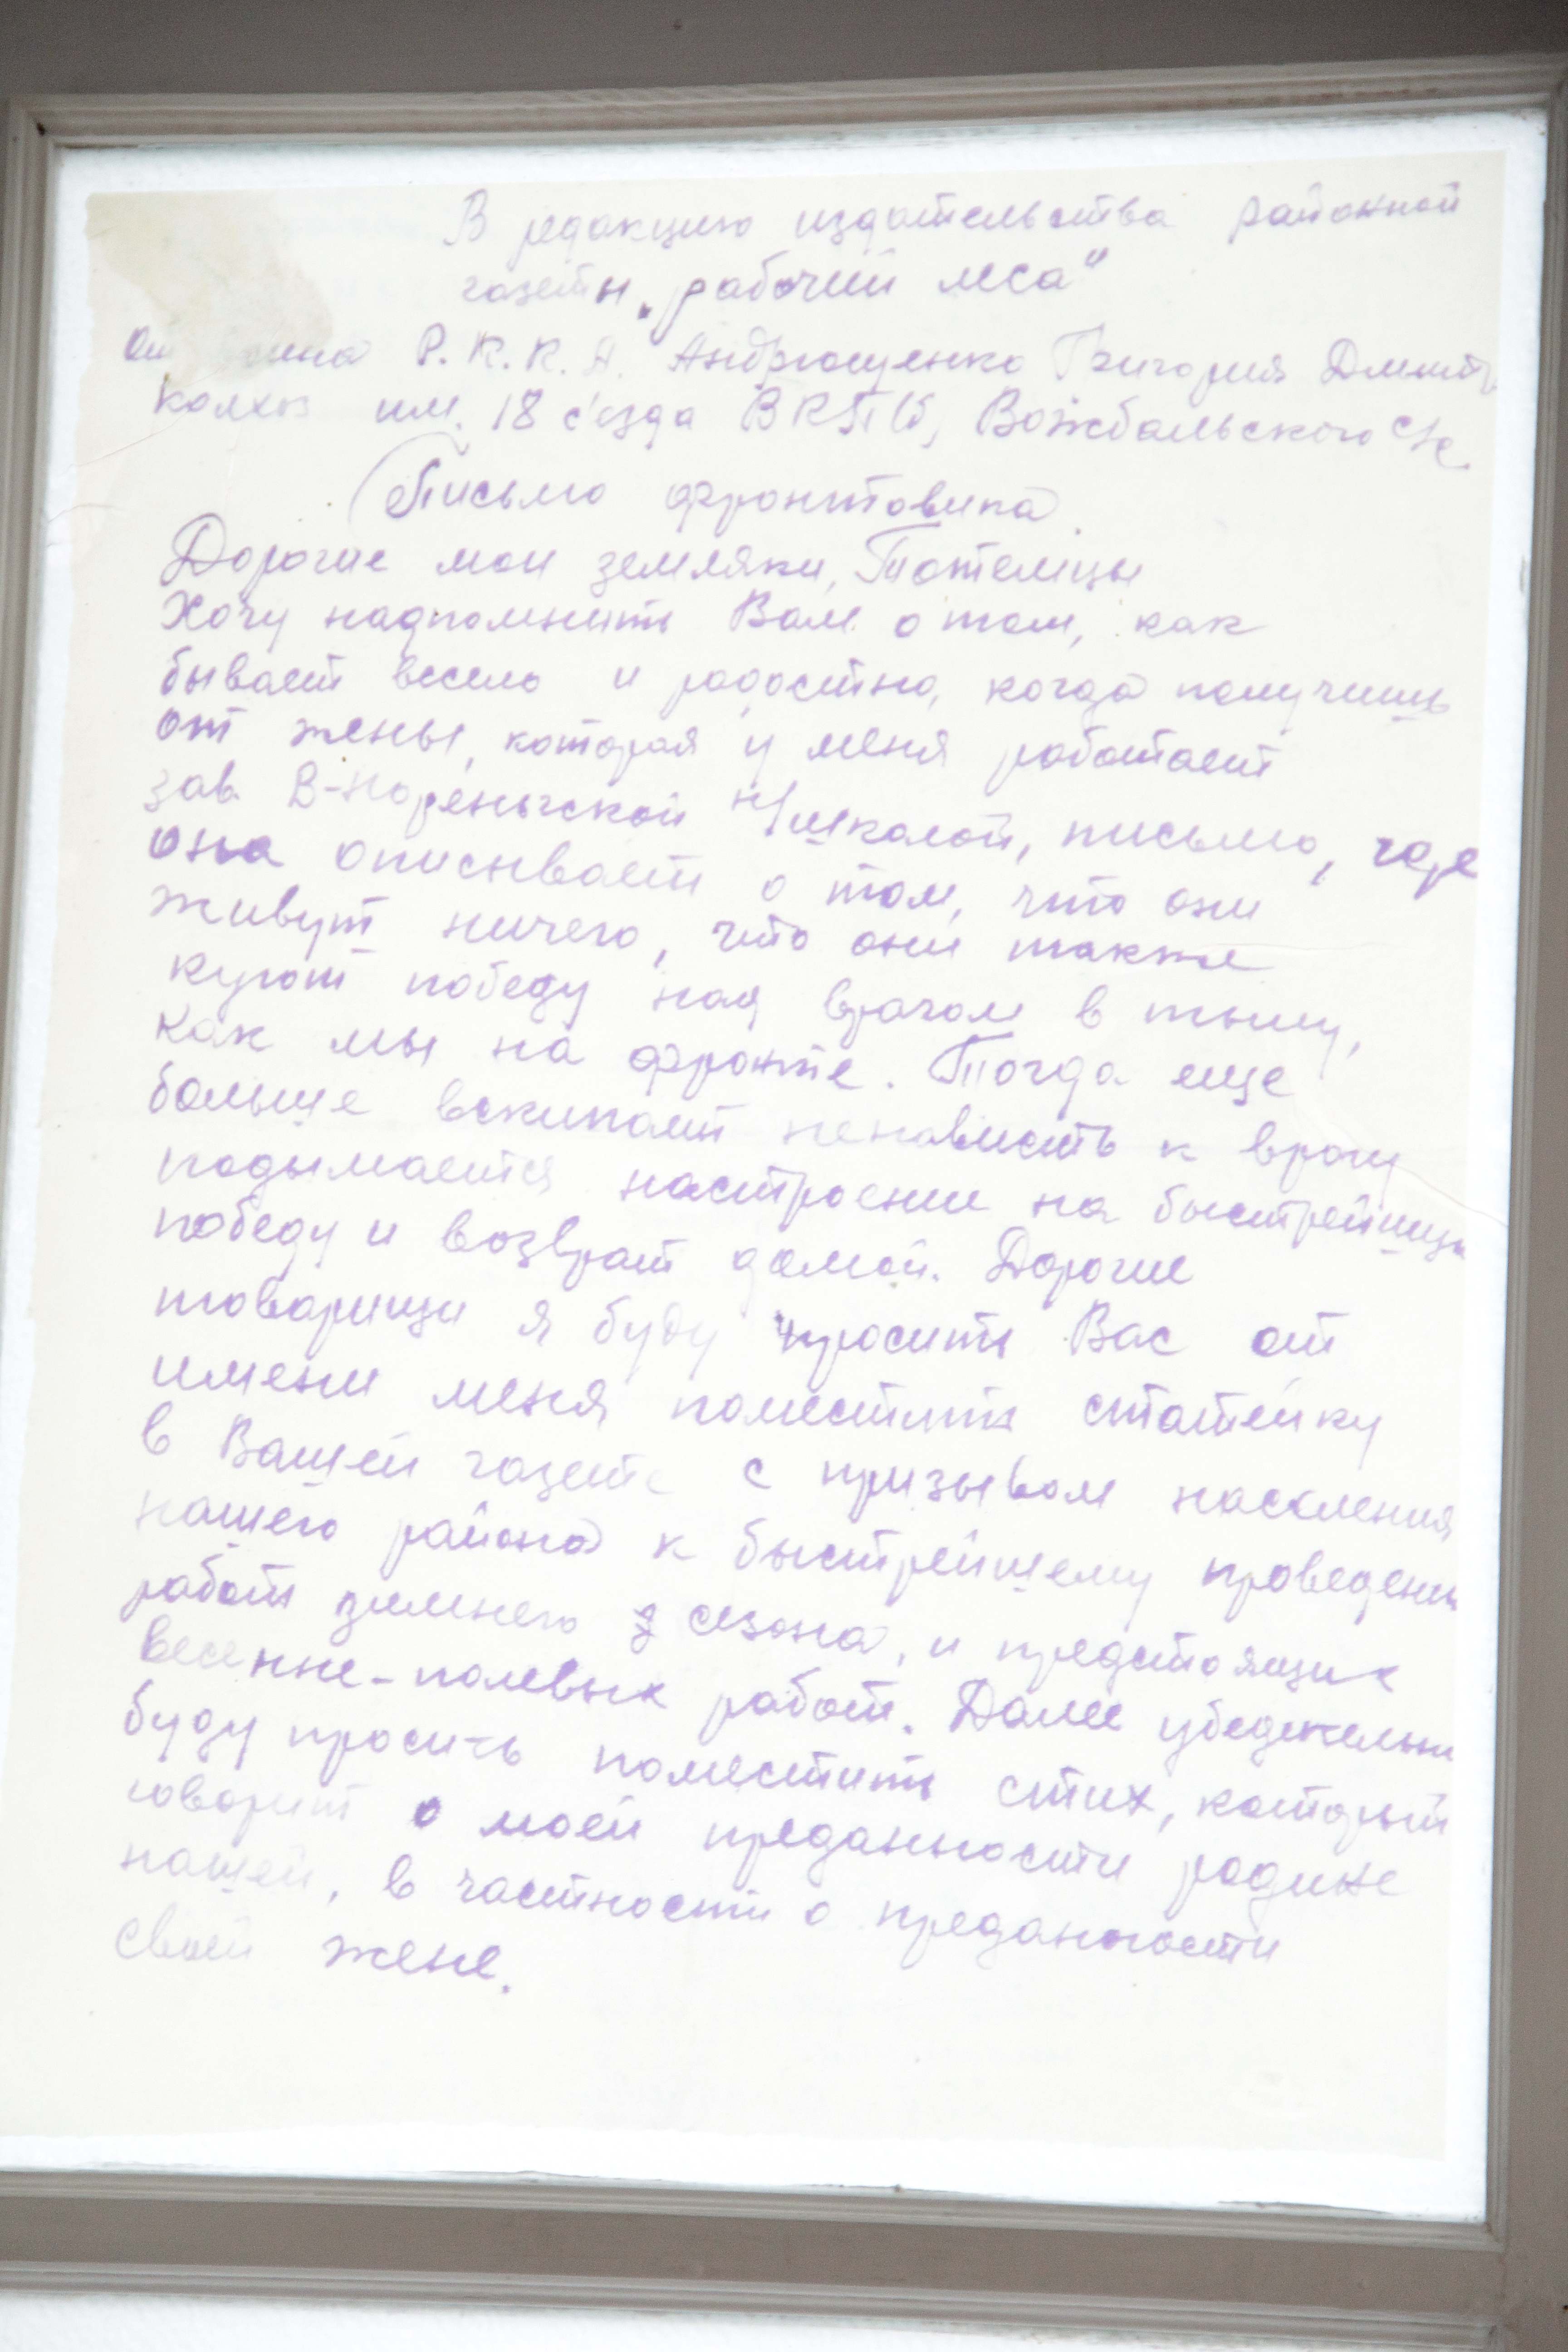 В редакцию издательства районной
газеты „рабочий леса"
От воина Р.К.К.А. Андрющенко Григория Дмит
колхоз им. 18 с'езда ВКП(б), Вожбальского с/с
Письмо фронтовика.
Дорогие мои земляки, Тотемцы
Хочу надпомнить Вам о том, как
бывает весело и радостно, когда получишь
от жены, которая у меня работает
зав. В-нореньгской н/школой, письмо, где
она описывает о том, что они
живут ничего, что они также
куют победу над врагом в тылу,
как мы на фронте. Тогда еще
больше вскипает ненависть к врагу
подымается настроение на быстрейшую
победу и возврат домой. Дорогие
товарищи я буду просить Вас от
имени меня поместить статейку
в Вашей газете с призывом населения
нашего района к быстрейшему проведени
работ зимнего сезона, и предстоящих
весенне-полевых работ. Далее убедительн
буду просить поместить стих, который
говорит о моей преданности родине
нашей, в частности о преданности
своей жене.